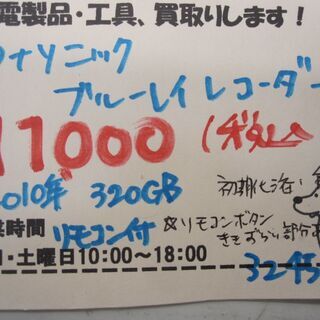 電製品・工具、買取りします！
ナソニック
ブルーレイ レコーダ
11000 (税込
2010年 320GB
初期化済
業時間 リモコン付 ※リモコンボタン
ききずらい部分
・土曜日10:00～18:00
3245